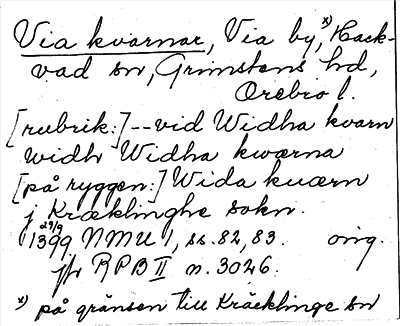 Via kvarnar, Via by, x) Hack-
vad sn, Grimstens hd,
Örebro l.
[rubrik:]--vid Widha kvarn
widh Widha kwærna
[på ryggen:] Wida kuærn
j Kræklinghe sokn.
29/9
1399 NMU 1, ss. 82, 83. orig.
jfr RPB II n. 3026.
x) på gränsen till Kräcklinge sn